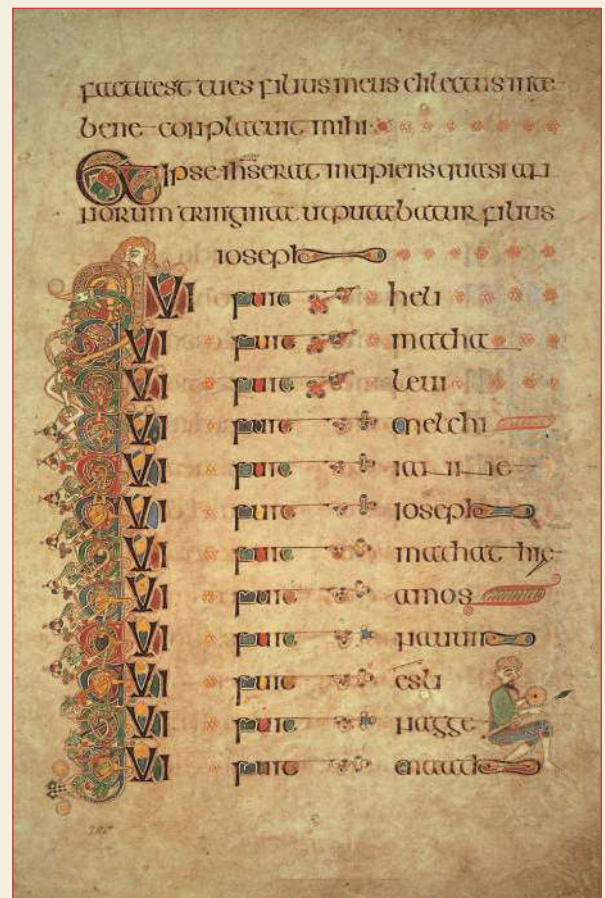 facta est tu es filius meus dilectus in te
bene conplacuit mihi
Et ipse ihs erat incipiens quasi an
norum triginta ut putabatur filius
ioseph
QVI fuit heli
QVI fuit matha
QVI fuit leui
QVI fuit melchi
QVI fuit
QVI fuit ioseph
QVI fuit mathathie
QVI fuit amos
QVI fuit nauum
QVI fuit esli
QVI fuit nagge
QVI fuit maath